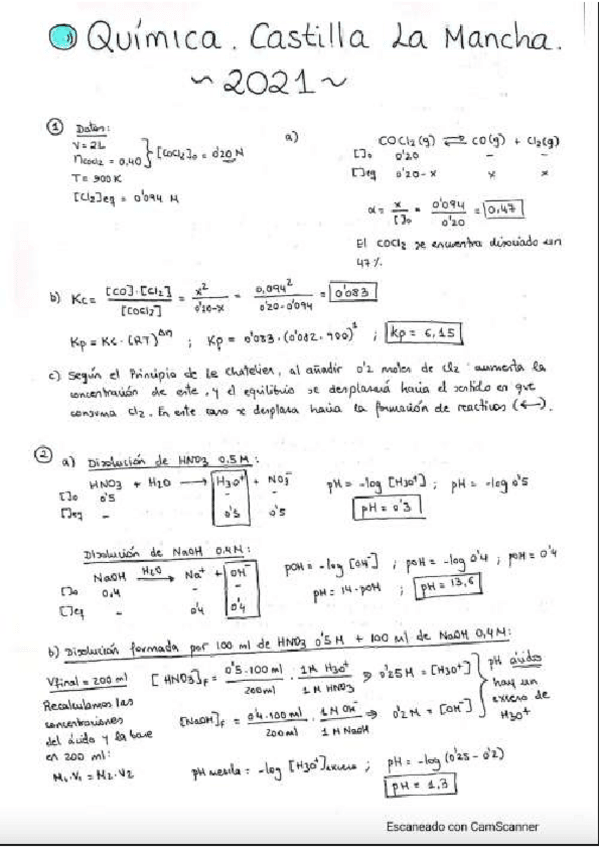 Química. Castilla La Mancha.
~ 2021 ~
① Datos:
V = 2L
nCOCl2 = 0,40 } [COCl2]0 = 0'20 M
T = 900 K
[Cl2]eq = 0'094 M
a)
COCl2(g) ⇌ CO(g) + Cl2(g)
[ ]0 0'20 - -
[ ]eq 0'20-x x x
α = x/[ ]0 = 0'094/0'20 = 0,47
El COCl2 se encuentra disociado un
47%.
b) Kc = [CO]·[Cl2]/[COCl2] = x²/0'20-x = 0,094²/0'20-0'094 = 0'083
Kp = Kc·(RT)^Δn ; Kp = 0'083·(0'082·900)¹ ; Kp = 6,15
c) Según el Principio de Le Chatelier, al añadir 0'2 moles de Cl2 aumenta la
concentración de este, y el equilibrio se desplasará hacia el sentido en que
consuma Cl2. En este caso se desplaza hacia la formación de reactivos (←).
② a) Disolución de HNO3 0.5M:
HNO3 + H2O → H3O⁺ + NO3⁻
[ ]0 0'5 - -
[ ]eq - 0'5 0'5
pH = -log [H3O⁺] ; pH = -log 0'5
pH = 0'3
Disolución de NaOH 0.4M:
NaOH H2O→ Na⁺ + OH⁻
[ ]0 0,4 - -
[ ]eq - 0'4 0'4
pOH = -log [OH⁻] ; pOH = -log 0'4 ; pOH = 0'4
pH = 14-pOH ; pH = 13,6
b) Disolución formada por 100 ml de HNO3 0'5M + 100 ml de NaOH 0,4M:
Vfinal = 200 ml
Recalculamos las
concentraciones
del ácido y la base
en 200 ml:
M1·V1 = M2·V2
[HNO3]F = 0'5·100 ml/200 ml · 1M H3O⁺/1 M HNO3 ⇒ 0'25M = [H3O⁺]
[NaOH]F = 0'4·100 ml/200 ml · 1 M OH⁻/1 M NaOH ⇒ 0'2M = [OH⁻]
pH ácido
hay un
exceso de
H3O⁺
pH mezcla: -log [H3O⁺]exceso ; pH = -log (0'25-0'2)
pH = 1,3
Escaneado con CamScanner